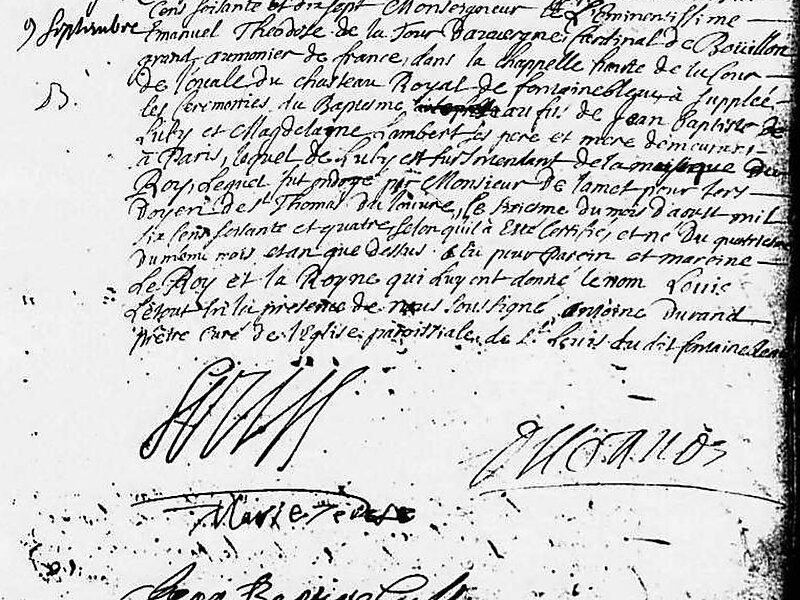 9 Septembre
Cens soisante et dix sept Monseigneur L'Eminentissime
Emanuel Theodose de la Tour Dauvergne, Cardinal de Bouillon
grand aumonier de france, dans la Chappelle haute de la Cour
de l'ouale du Chasteau Royal de fontainebleau, à Supplée
B.
les Ceremonies du Baptesme au fils de Jean Baptiste De
Luly et Magdelayne Lambert ses pere et mere demeurans
à Paris, lequel de Luly est surJntendant de la musique Du
Roy, Lequel fut ondoyé par Monsieur De lamet pour lors
Doyen de St Thomas du louvre, le sixiesme du mois D'aoust mil
six Cens soisante et quatre selon quil à Esté Certifié, et né Du quatriesme
du meme mois et an que dessus à Eu pour Parein et mareine
Le Roy et la Royne qui Luy ont donné le nom Louis
Le tout en la presence de nous soussigné antoine Durand
prêtre curé de l'Eglise paroissiale de St Louis du dit fontainebleau
Louis
Durand
Marie Terese
Jean Baptiste Lully